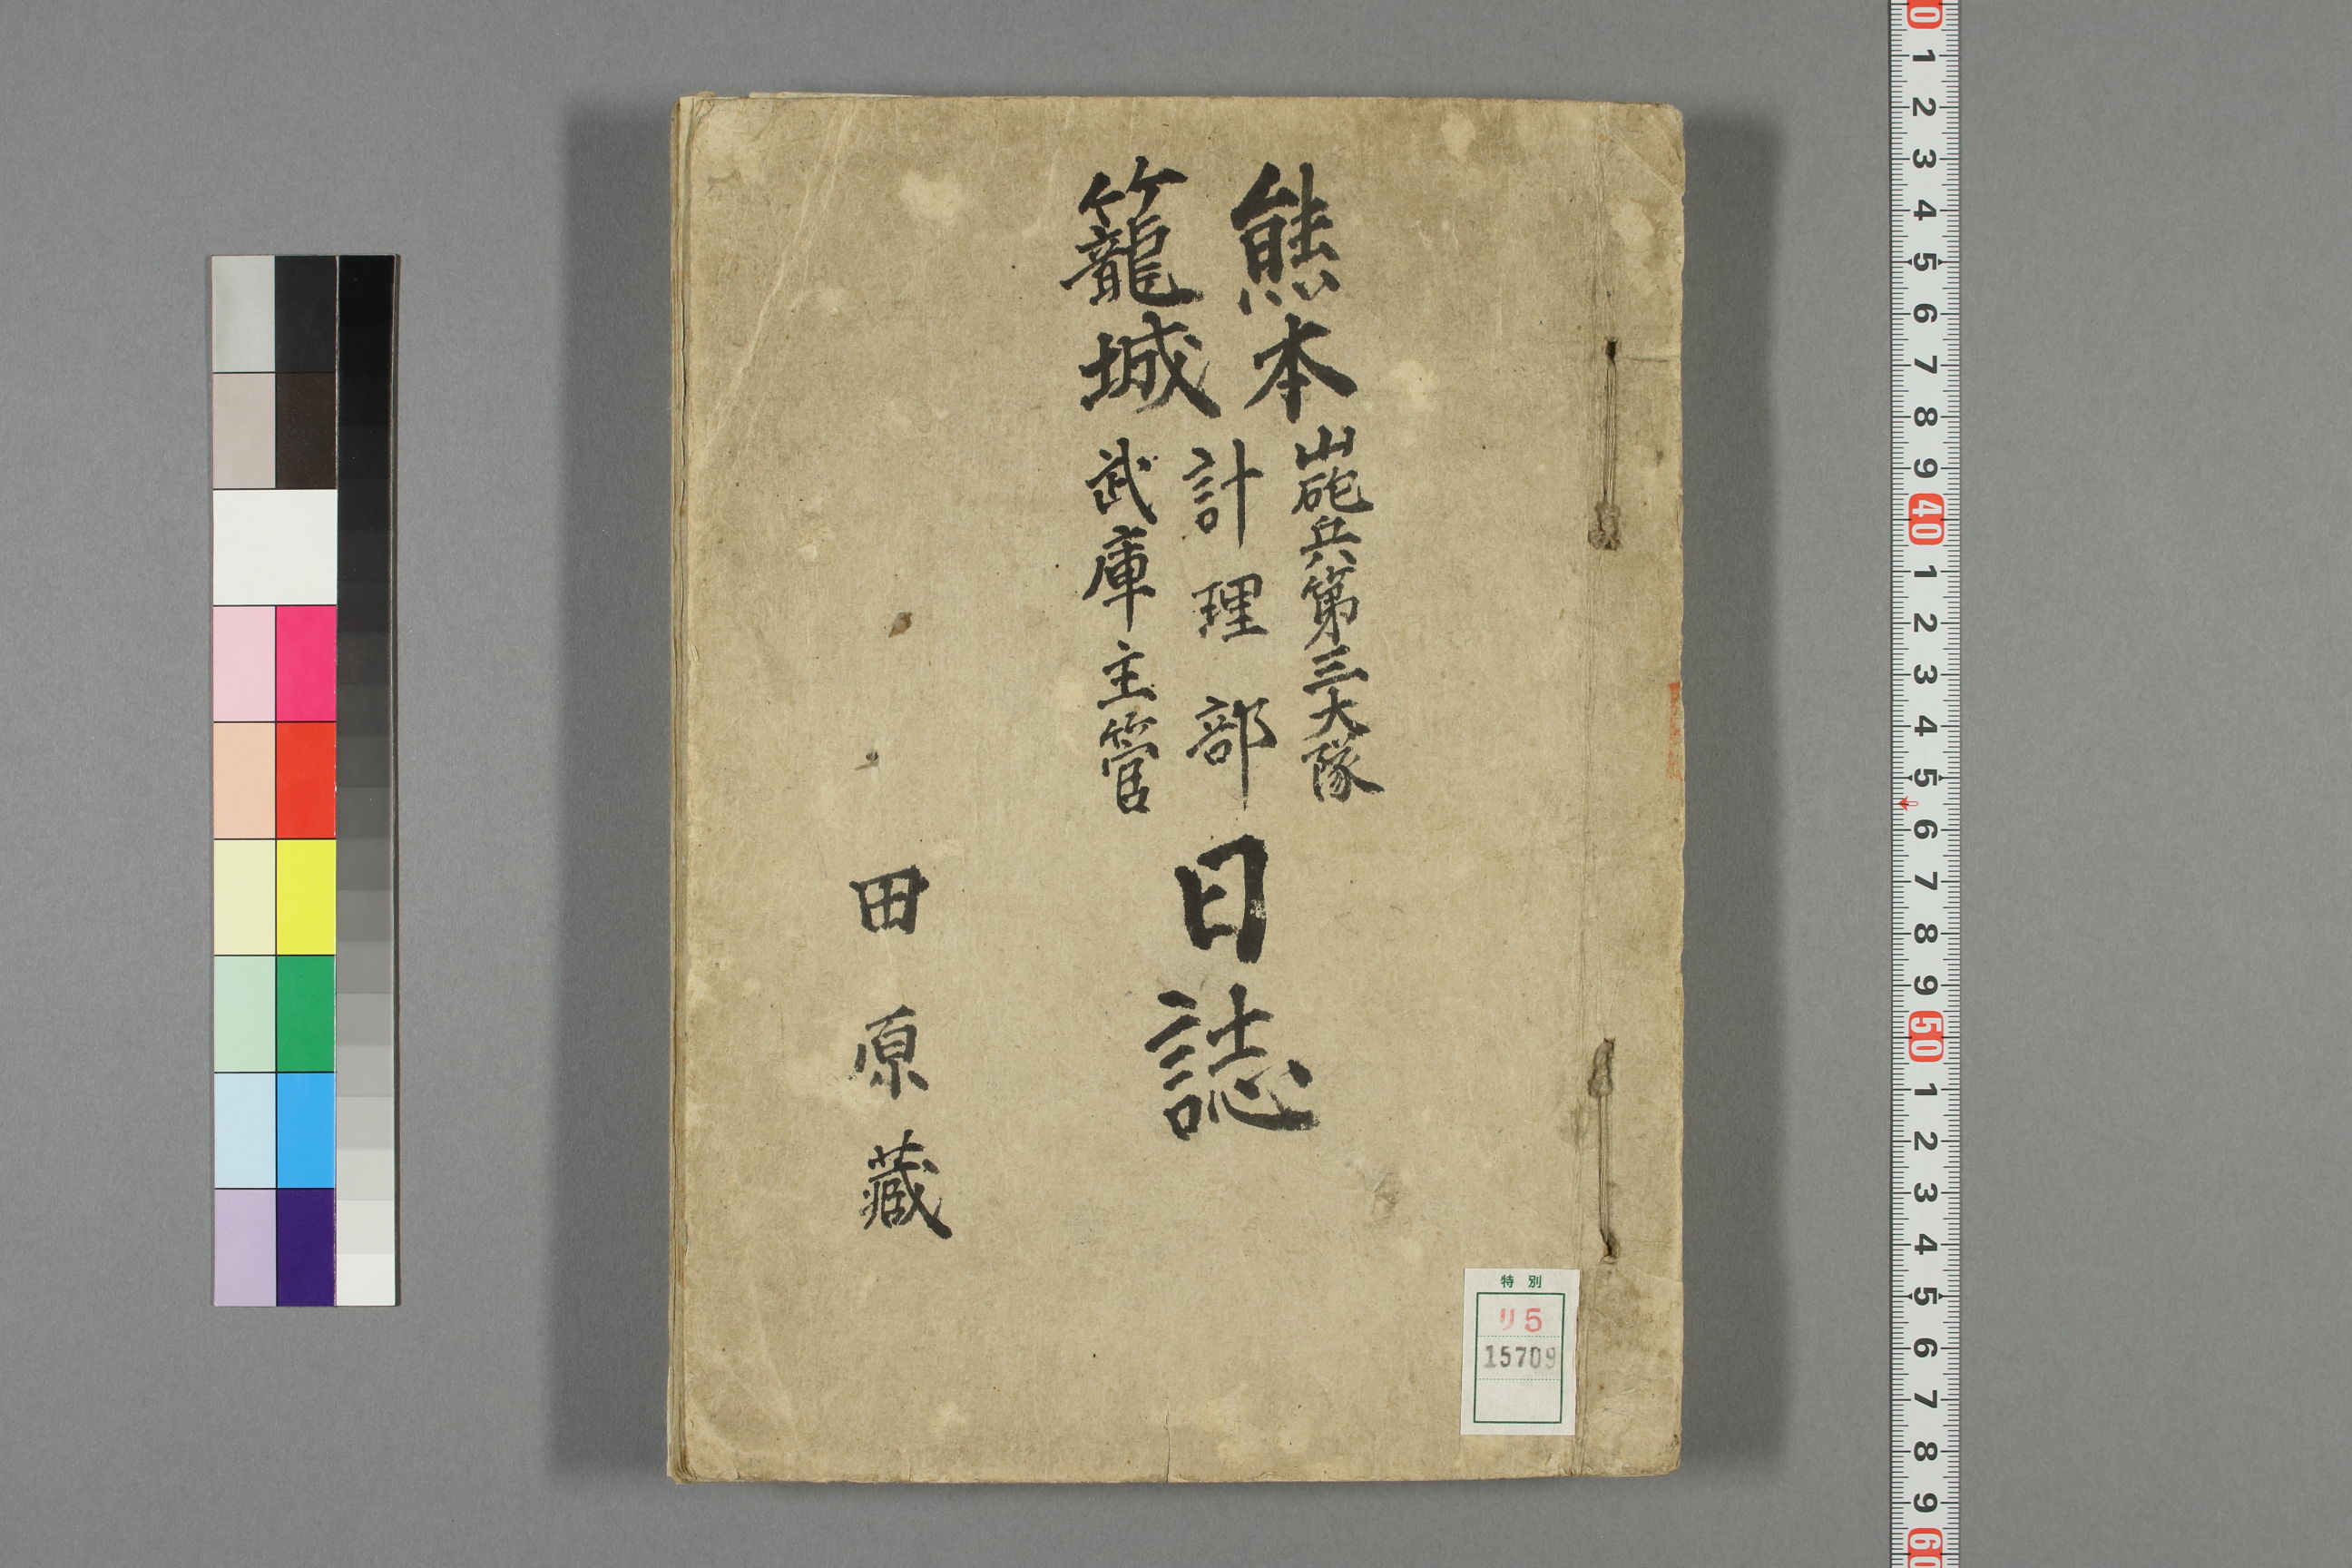 熊本
籠城
山砲兵第三大隊
計理部
武庫主管
日誌
田原藏
特別
リ5
15709
0 1 2 3 4 5 6 7 8 9 40 1 2 3 4 5 6 7 8 9 50 1 2 3 4 5 6 7 8 9 60